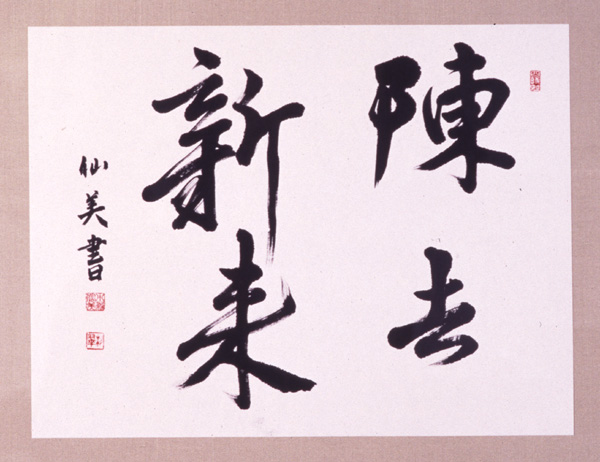 陳去
新来
仙美書